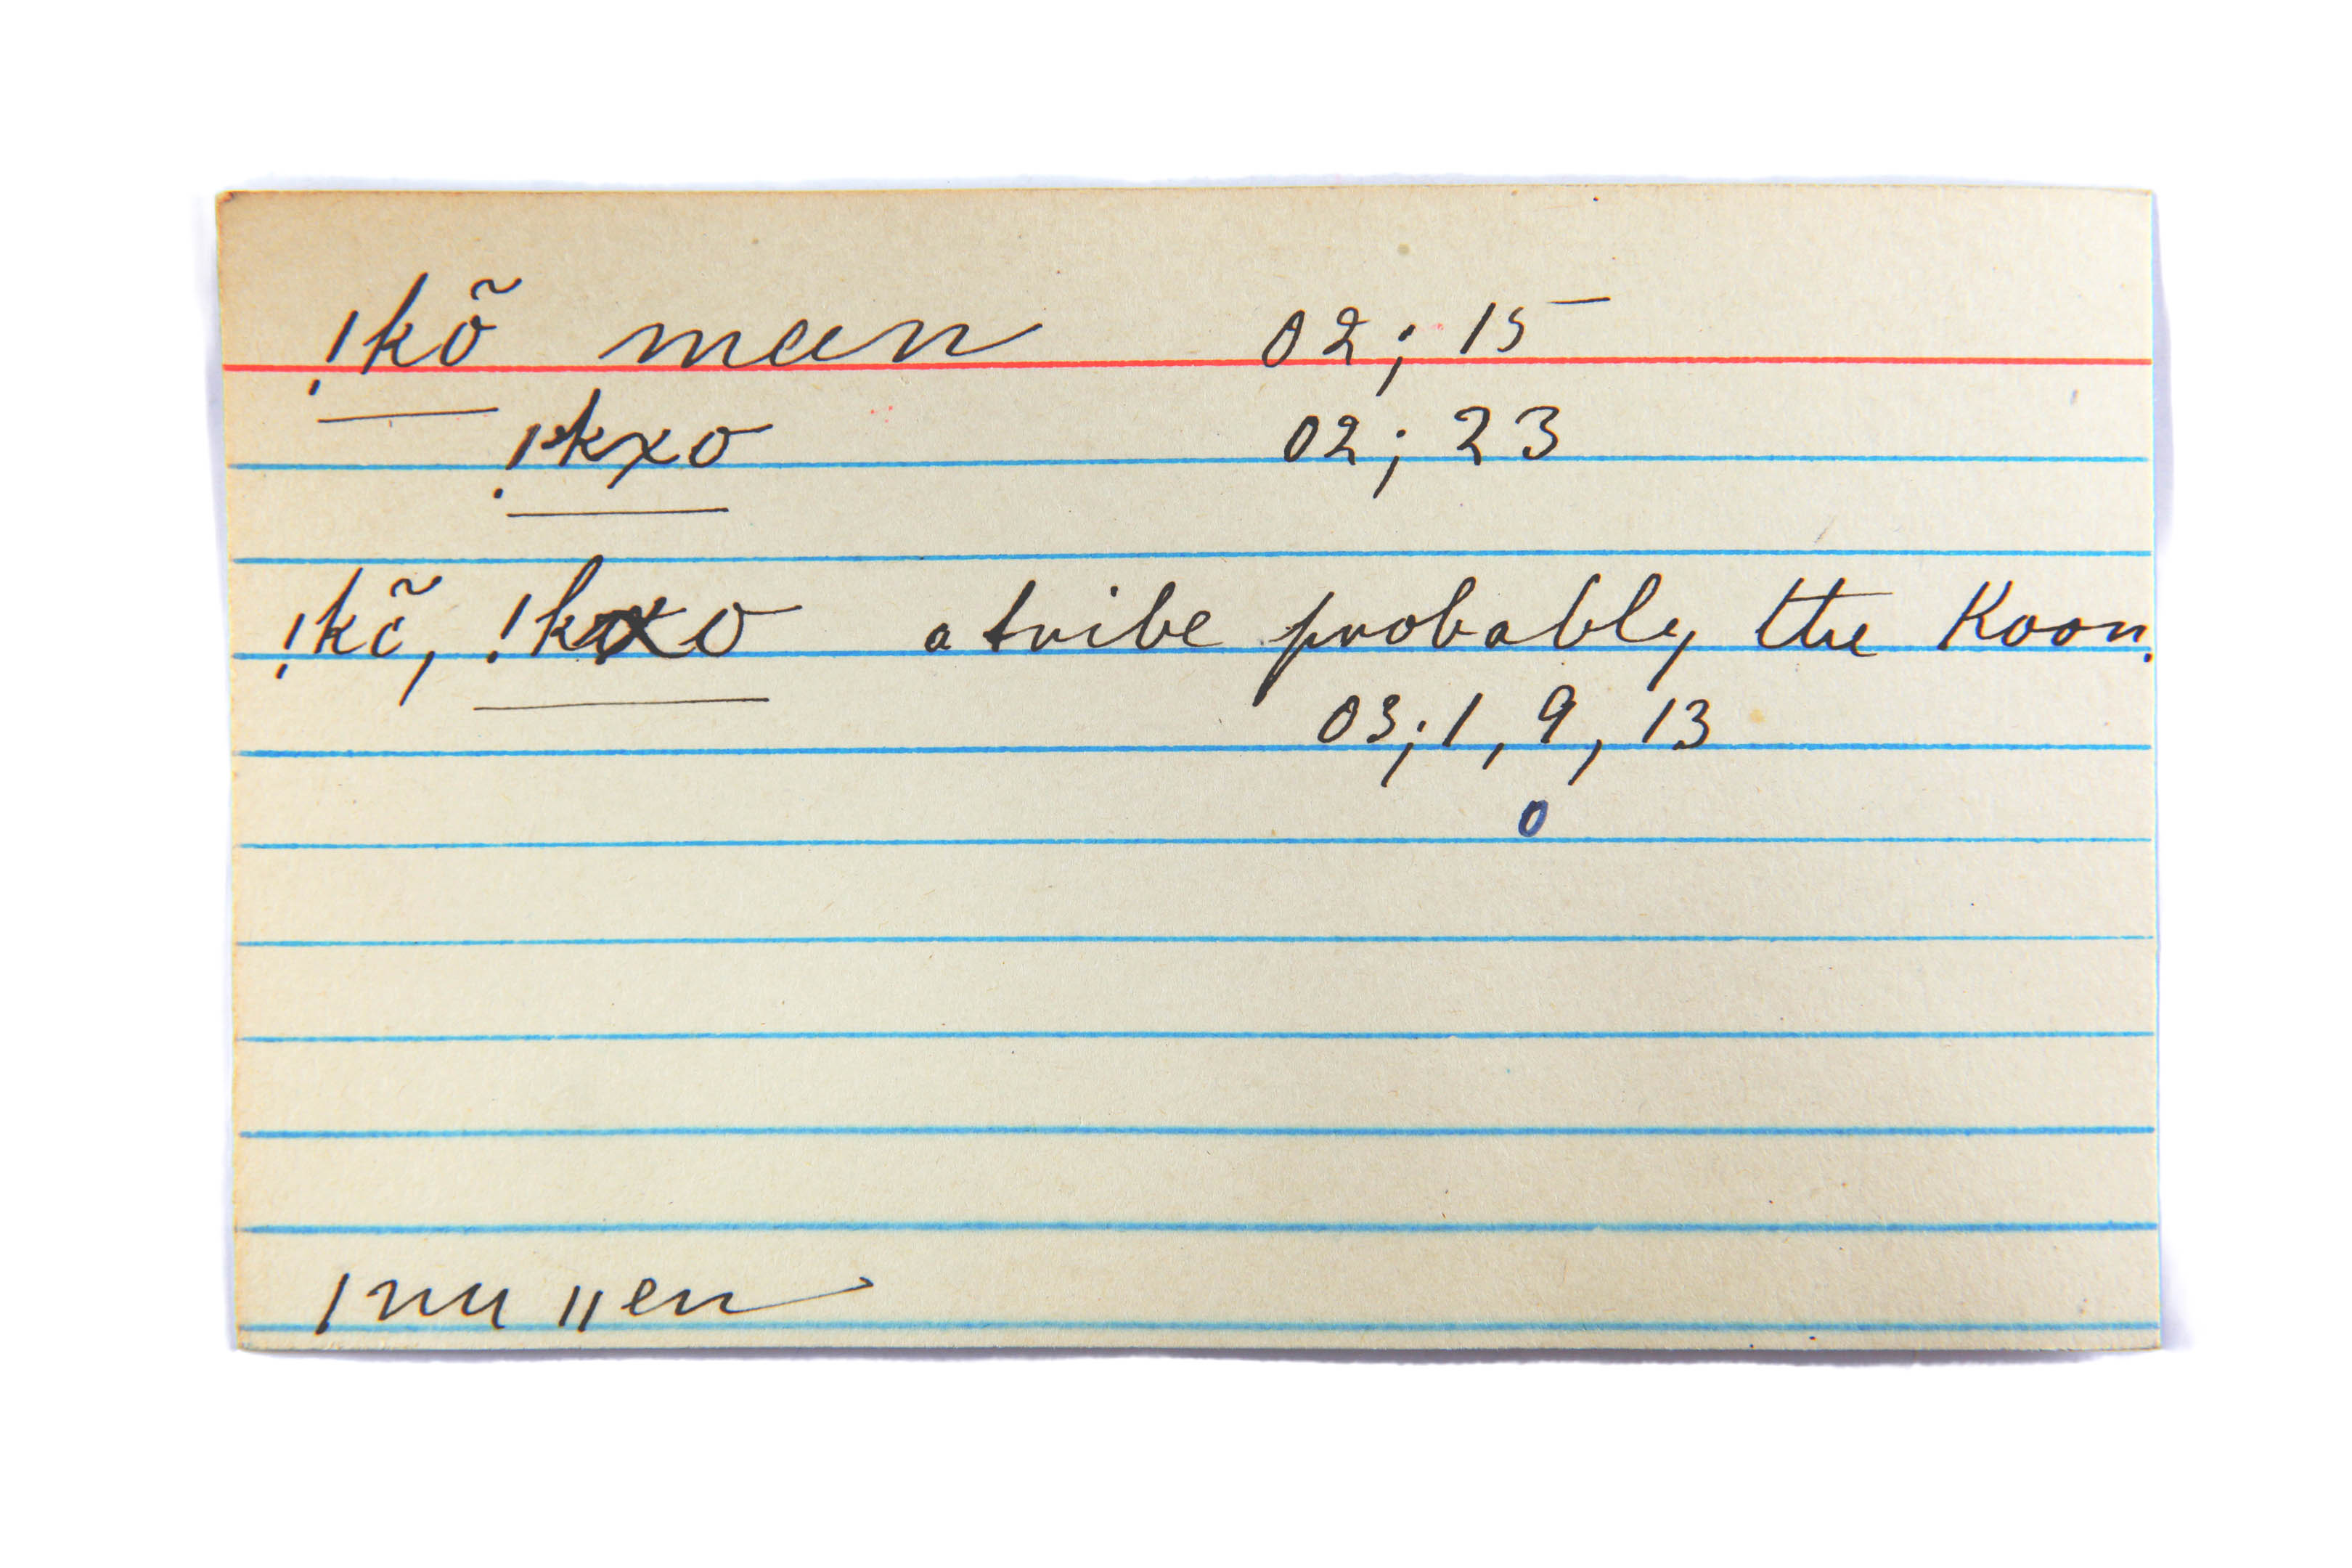 !kõ man 02; 15
!kxo 02; 23
!kõ, !kxo a tribe probably the Koon.
03; 1, 9, 13
0
|nu ||en